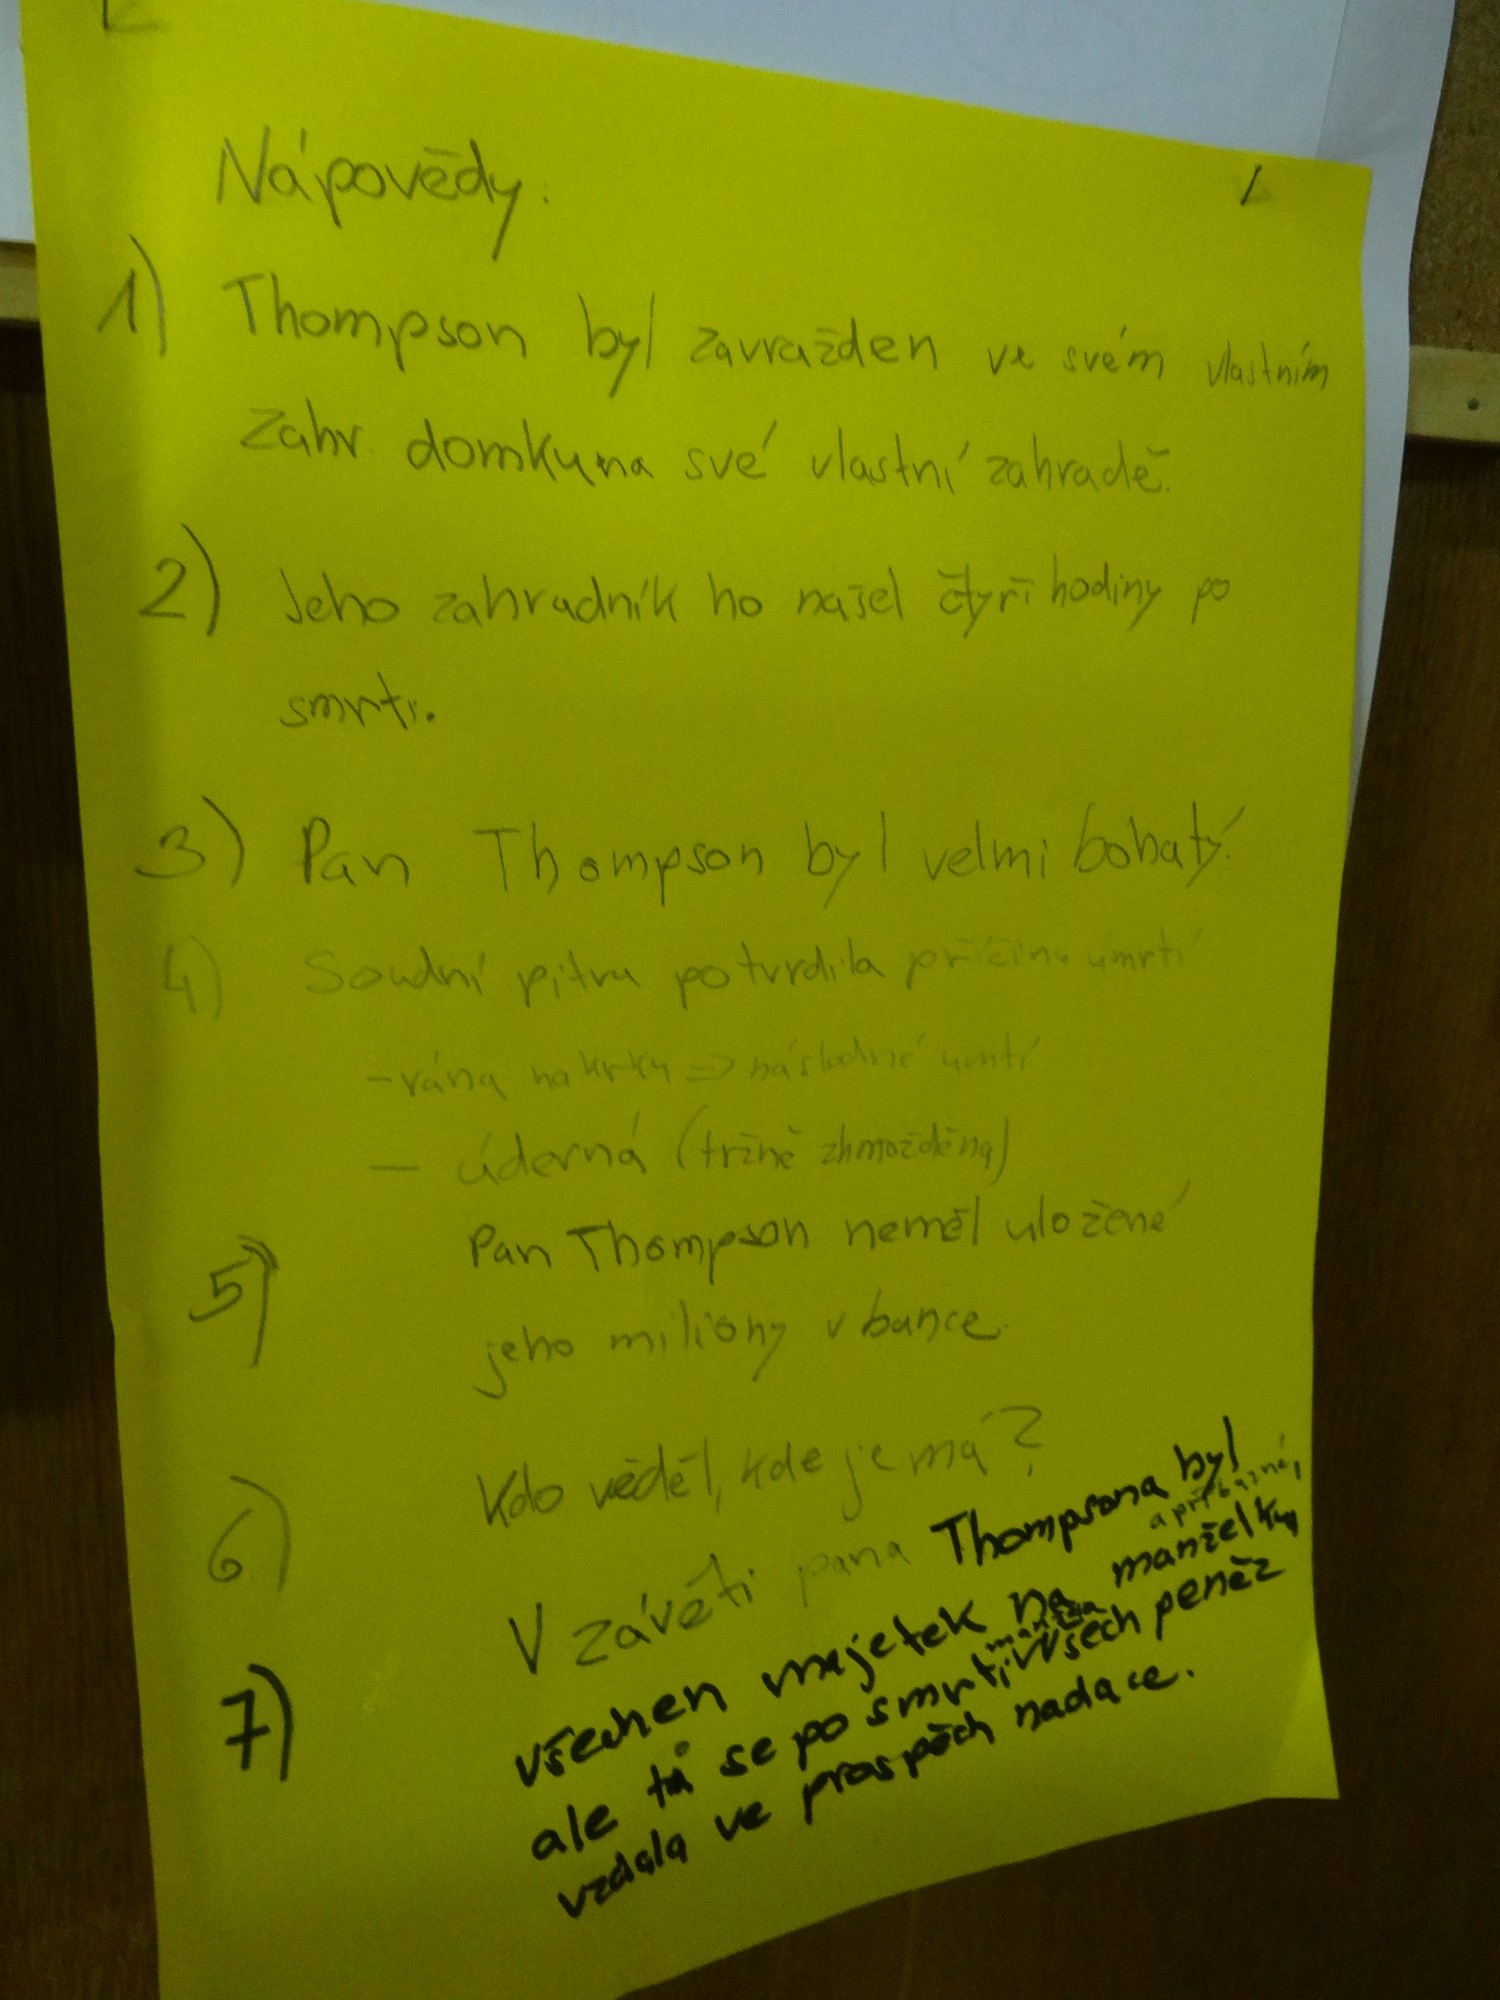 Nápovědy:
1) Thompson byl zavražden ve svém vlastním
zahr. domku na své vlastní zahradě.
2) Jeho zahradník ho našel čtyři hodiny po
smrti.
3) Pan Thompson byl velmi bohatý.
4) Soudní pitva potvrdila příčinu úmrtí
- rána na krku => následné umtí
- úderná (tržně zhmožděná)
5) Pan Thompson neměl uložené
jeho miliony v bance.
6) Kdo věděl, kde je má?
7) V závěti pana Thompsona byl
všechen majetek na manželku, a příbuzné,
ale ta se po smrti manžela všech peněz
vzdala ve prospěch nadace.